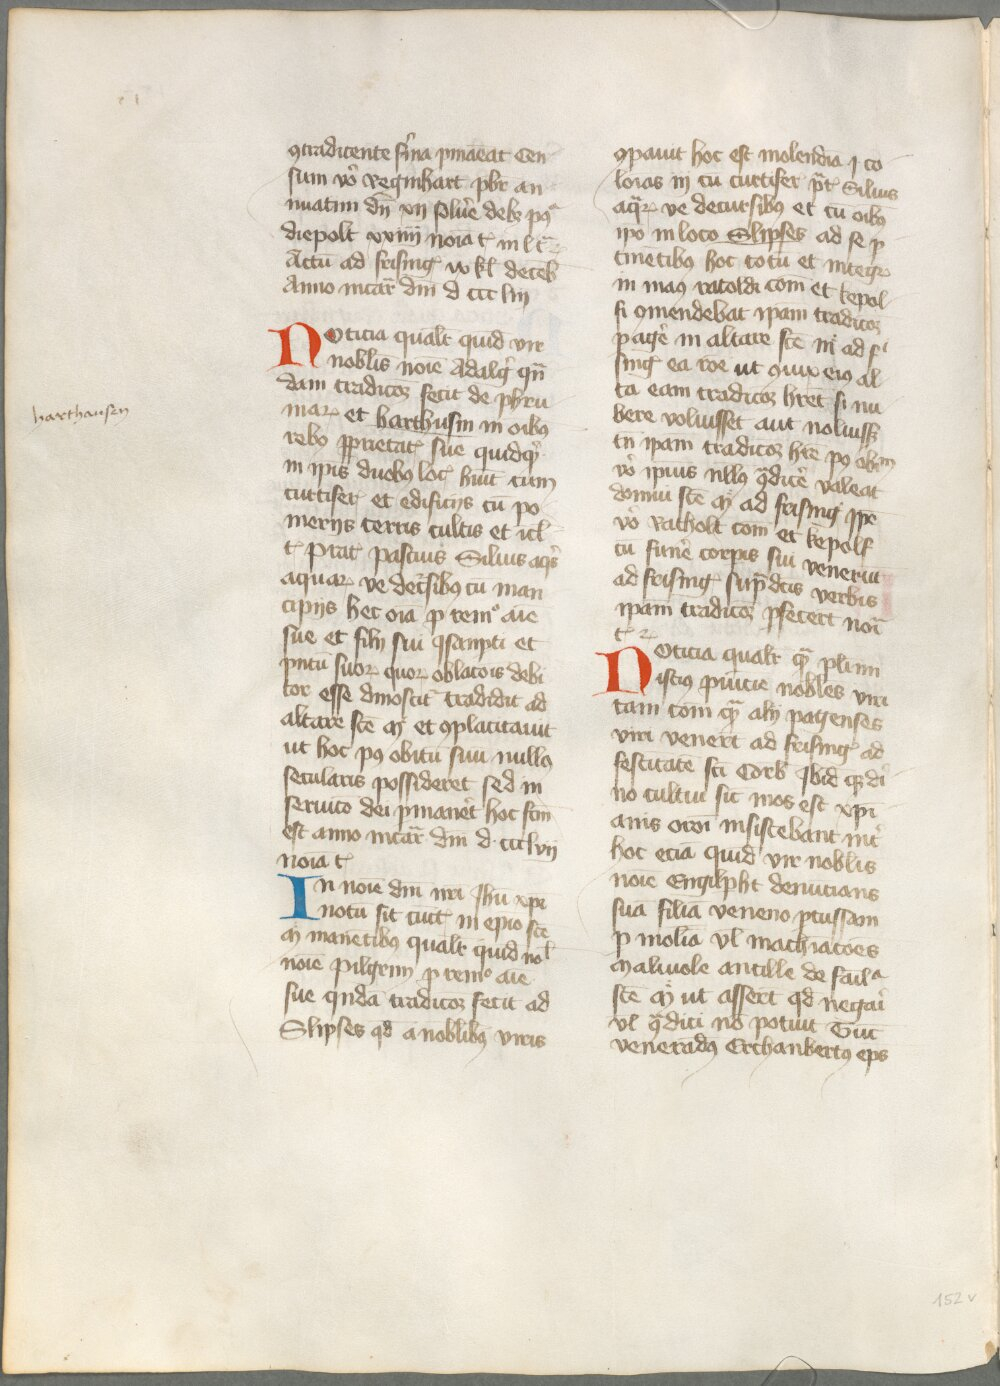 ꝯtradicente fir̄ia ꝑmāeat Cen
sum vo᷎ Reginhart pb̄r an
nuatim dn̄ xij solu᷎e debꝫ pꝯ
diepolt xxiiij noīa t̄ in lt̄
Actū ad frisinḡ vv kl̄ decēb
Anno incar̄ dn̄i d ccc liij
Noticia qualt̄ quid vir
nobilis noīe Adalg̾ qn̄
dam tradicōꝫ fecit de phru
marꝝ et harthusin in oībꝯ
rebꝯ ꝓprietat̄ sue quidq᷎
in ip̄is duobꝯ loc̄ h̄uit cum
curtifer̄ et edificijs cū po
merijs terris cultis et īcl̄
t̄ prat̄ pascuis Siluis aq̄s
aquarꝝ ve dec̄sibꝯ cū man
cipijs hec oīa ꝓ rem̊ aīe
sue et filij sui ꝯsāpti et
pn̄tū suoꝝ quoꝝ oblacōis debi
tor esse dinoscit᷑ tradidit ad
altare sc̄e M̄ et ꝯplacitauit
ut hoc pꝯ obitū suū nullꝯ
secularis possideret sed in
seruico dei ꝑmaner̄t hoc fc̄m
est anno incar̄ dn̄i d·ccc lvij
noīa t̄
In noīe dn̄i nr̄i Jhū xp̄i
notū sit cūct̄ in ep̄io sc̄e
M̄ manētibꝯ qualt̄ quid nol̄
noīe pilgrim ꝓ rem̊ aīe
sue qn̄dā tradicōꝫ fecit ad
Slipses qd̄ a nobl̄ibꝯ viris
ꝯpauit hoc est molendīa ȷ co
lōias iij cū curtifer̄ p̄t̄ Siluis
aq̄rꝝ ve decursibꝯ et cū oībꝯ
ip̄o in loco Slipses ad se ꝑ
tinētibꝯ hoc totū et integrꝝ
in manꝯ ratoldi com̄ et kepol
fi ꝯmendebat ip̄am tradicōꝫ
ꝑag᷎e in altare sc̄e M̄ ad fi
sinḡ ea roe ut ꝯiux eiꝯ al
ta eam tradicōꝫ hr̄et si nu
bere voluisset aut noluissꝫ
tn̄ ip̄am tradicōꝫ hr̄e pꝯ obitū
vo᷎ ip̄ius nllꝯ ꝯ̄dic᷎e valeat
domui sc̄e M̄ ad frisinḡ ip̄e
vo᷎ Ratholt com̄ et kepolf
cū fun᷎e corp̄is sui venerūt
ad frisinḡ sup̄dc̄is verbis
ip̄am tradicōꝫ ꝑfecert̄ noīa
t̄ ꝛ
Noticia qualt̄ qn̄ pl̄imi
istiꝯ ꝓuīcie nobiles viri
tam com̄ qm̄ alij pagenses
viri venert̄ ad frisinḡ ad
festītatē sc̄i Corb̄ Jbidē qꝫ di
no cultui sic̄ mos est xp̄i
anis orōi insistebant int᷎
hoc eciā quid̄ vir nobl̄is
noīe Engilpht denūcians
suā filiā veneno ꝑcussam
ꝑ molīa vl̄ machinatōes
maliuole ancille de famīlᵃ
sc̄e M̄ ut assert̄ qd̄ negai᷎
vl̄ ꝯ̄dici nō potuit Tūc
venerādꝯ Erchanbertꝯ ep̄s
harthausen
152 v